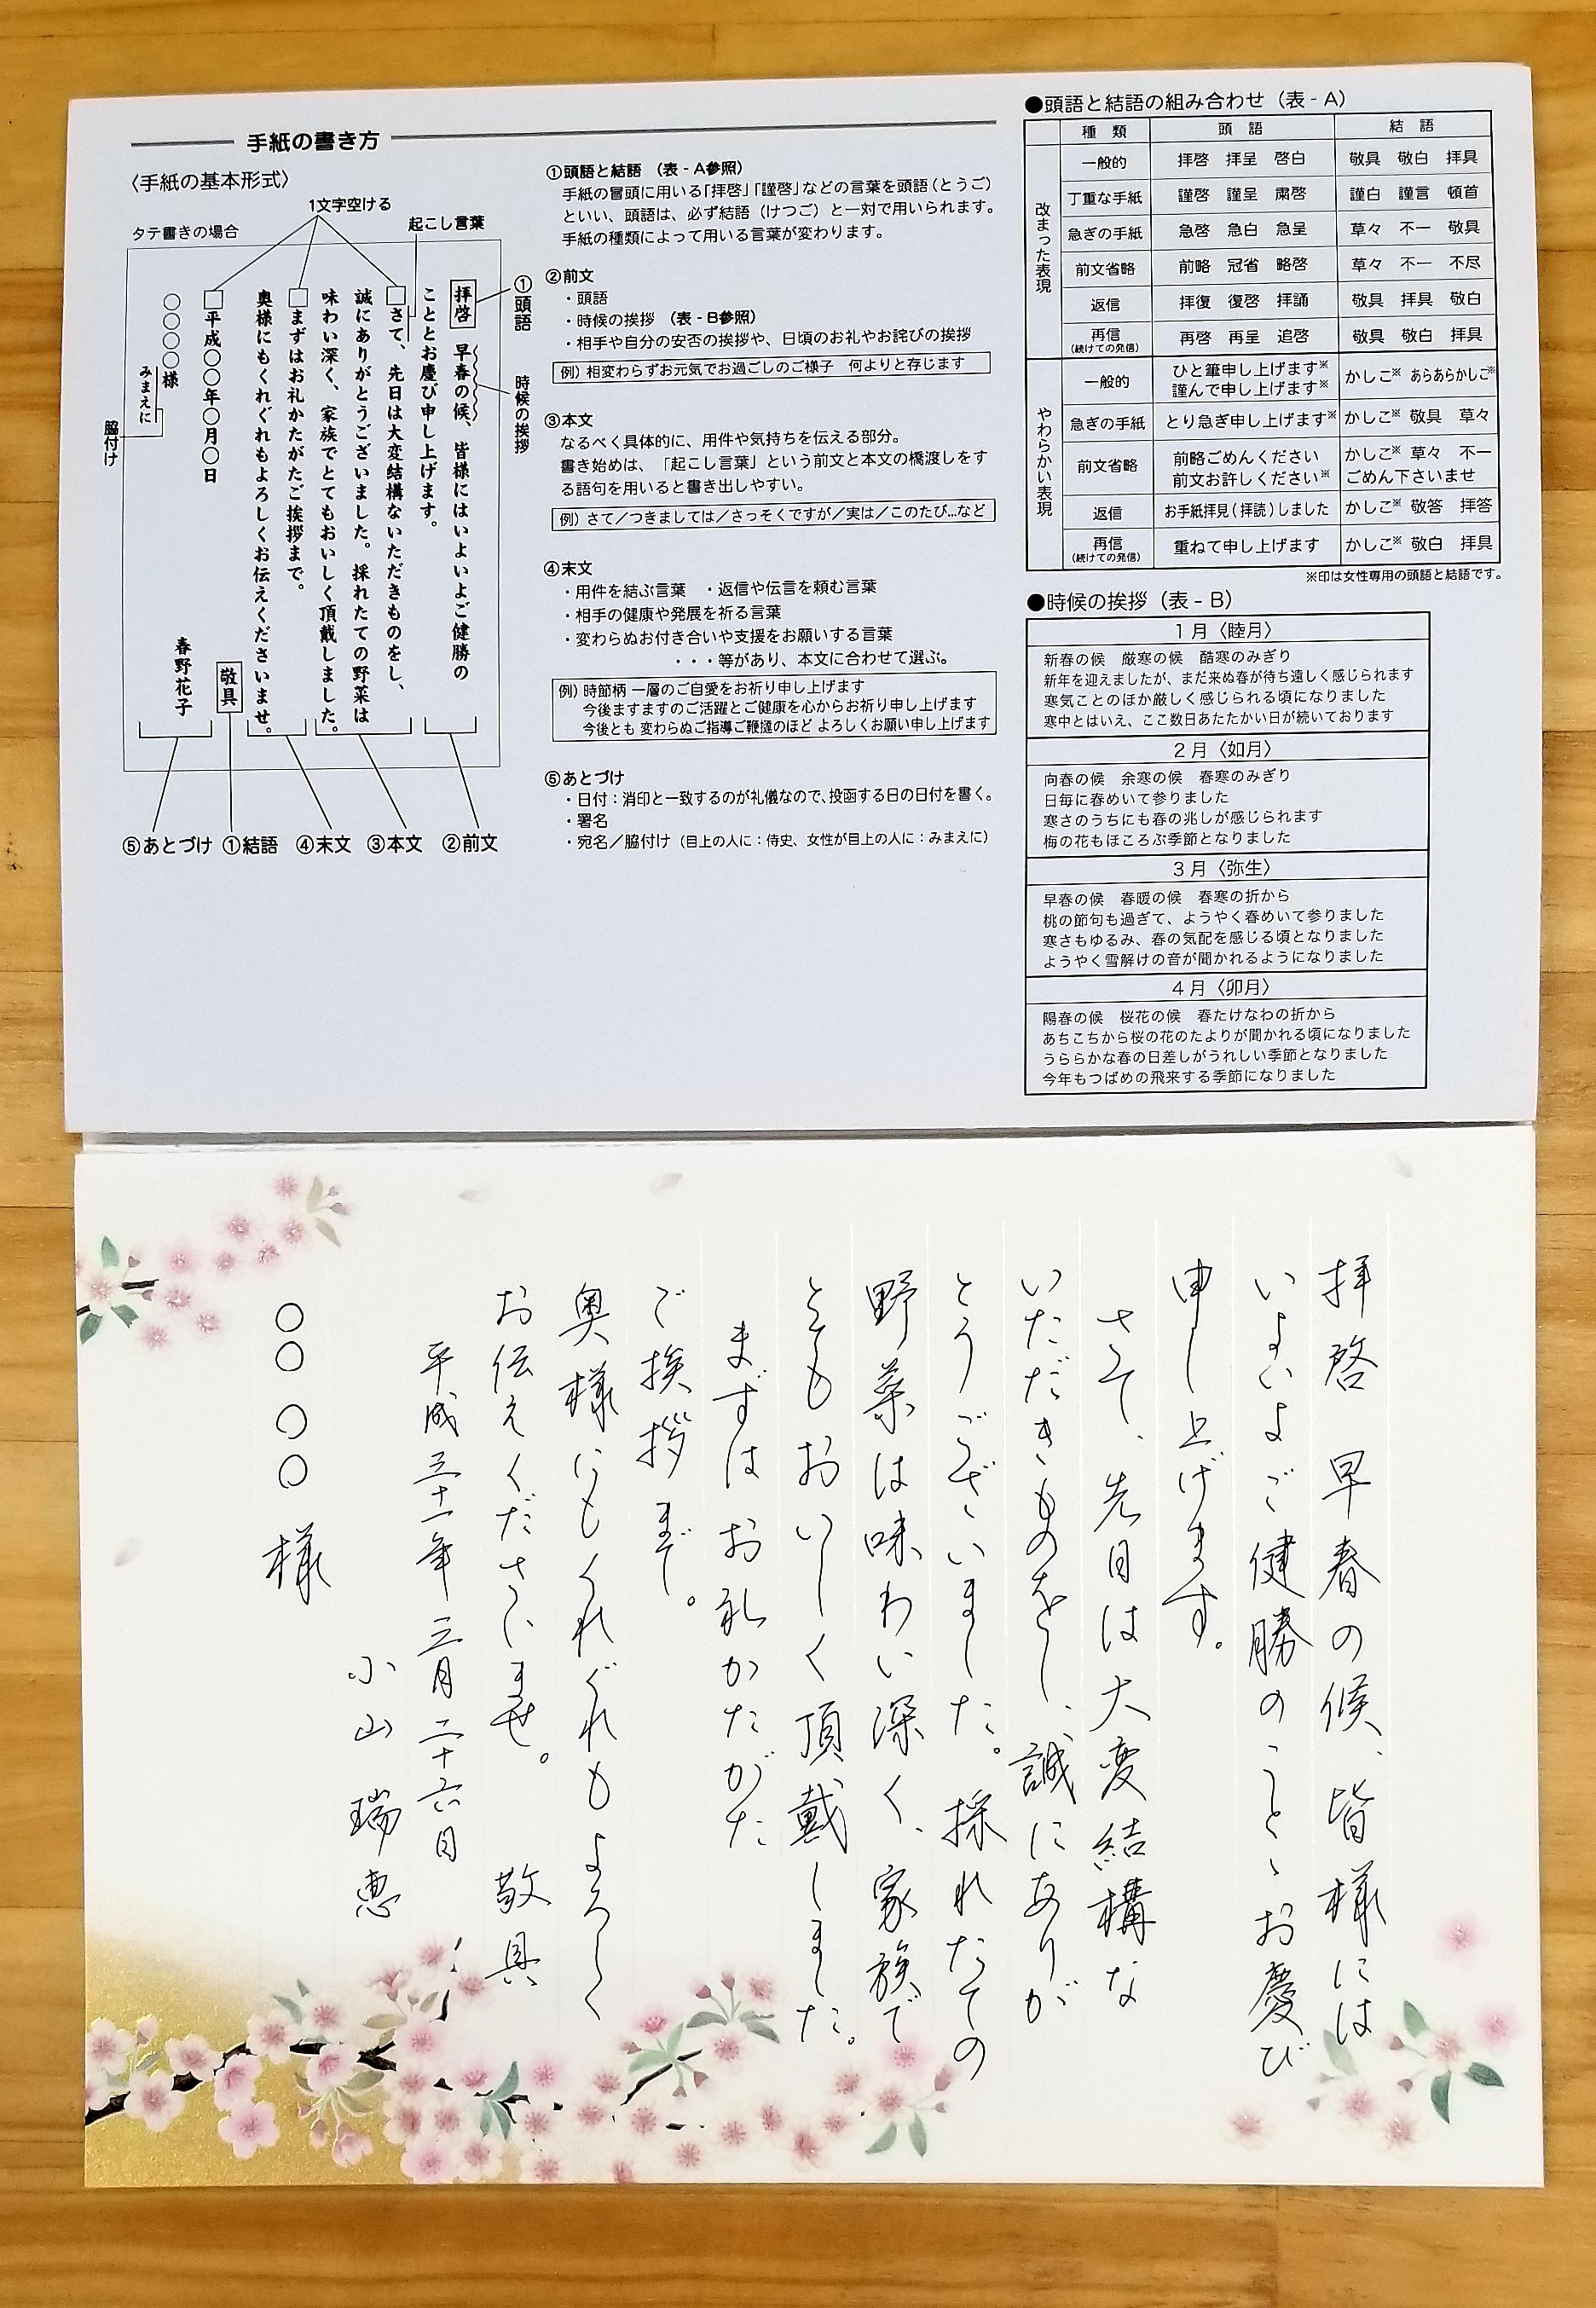 手紙の書き方
〈手紙の基本形式〉
タテ書きの場合
1文字空ける
起こし言葉
①頭語
時候の挨拶
拝啓 早春の候、皆様にはいよいよご健勝の
こととお慶び申し上げます。
□さて、先日は大変結構ないただきものをし、
誠にありがとうございました。採れたての野菜は
味わい深く、家族でとてもおいしく頂戴しました。
□まずはお礼かたがたご挨拶まで。
奥様にもくれぐれもよろしくお伝えくださいませ。
敬具
□平成○○年○月○日
春野花子
○○○○様
みまえに
脇付け
⑤あとづけ ①結語 ④末文 ③本文 ②前文
①頭語と結語 (表-A参照)
手紙の冒頭に用いる「拝啓」「謹啓」などの言葉を頭語(とうご)
といい、頭語は、必ず結語(けつご)と一対で用いられます。
手紙の種類によって用いる言葉が変わります。
②前文
・頭語
・時候の挨拶 (表-B参照)
・相手や自分の安否の挨拶や、日頃のお礼やお詫びの挨拶
例)相変わらずお元気でお過ごしのご様子 何よりと存じます
③本文
なるべく具体的に、用件や気持ちを伝える部分。
書き始めは、「起こし言葉」という前文と本文の橋渡しをす
る語句を用いると書き出しやすい。
例)さて/つきましては/さっそくですが/実は/このたび…など
④末文
・用件を結ぶ言葉 ・返信や伝言を頼む言葉
・相手の健康や発展を祈る言葉
・変わらぬお付き合いや支援をお願いする言葉
・・・等があり、本文に合わせて選ぶ。
例)時節柄 一層のご自愛をお祈り申し上げます
今後ますますのご活躍とご健康を心からお祈り申し上げます
今後とも 変わらぬご指導ご鞭撻のほど よろしくお願い申し上げます
⑤あとづけ
・日付:消印と一致するのが礼儀なので、投函する日の日付を書く。
・署名
・宛名/脇付け(目上の人に:侍史、女性が目上の人に:みまえに)
●頭語と結語の組み合わせ(表-A)
種類 頭語 結語
改まった表現
一般的 拝啓 拝呈 啓白 敬具 敬白 拝具
丁重な手紙 謹啓 謹呈 粛啓 謹白 謹言 頓首
急ぎの手紙 急啓 急白 急呈 草々 不一 敬具
前文省略 前略 冠省 略啓 草々 不一 不尽
返信 拝復 復啓 拝誦 敬具 拝具 敬白
再信(続けての発信) 再啓 再呈 追啓 敬具 敬白 拝具
やわらかい表現
一般的 ひと筆申し上げます※ 謹んで申し上げます※ かしこ※ あらあらかしこ※
急ぎの手紙 とり急ぎ申し上げます※ かしこ※ 敬具 草々
前文省略 前略ごめんください 前文お許しください※ かしこ※ 草々 不一 ごめん下さいませ
返信 お手紙拝見(拝読)しました かしこ※ 敬答 拝答
再信(続けての発信) 重ねて申し上げます かしこ※ 敬白 拝具
※印は女性専用の頭語と結語です。
●時候の挨拶(表-B)
1月〈睦月〉
新春の候 厳寒の候 酷寒のみぎり
新年を迎えましたが、まだ来ぬ春が待ち遠しく感じられます
寒気ことのほか厳しく感じられる頃になりました
寒中とはいえ、ここ数日あたたかい日が続いております
2月〈如月〉
向春の候 余寒の候 春寒のみぎり
日毎に春めいて参りました
寒さのうちにも春の兆しが感じられます
梅の花もほころぶ季節となりました
3月〈弥生〉
早春の候 春暖の候 春寒の折から
桃の節句も過ぎて、ようやく春めいて参りました
寒さもゆるみ、春の気配を感じる頃となりました
ようやく雪解けの音が聞かれるようになりました
4月〈卯月〉
陽春の候 桜花の候 春たけなわの折から
あちこちから桜の花のたよりが聞かれる頃になりました
うららかな春の日差しがうれしい季節となりました
今年もつばめの飛来する季節になりました
拝啓 早春の候、皆様には
いよいよご健勝のこと、お慶び
申し上げます。
さて、先日は大変結構な
いただきものをし、誠にありが
とうございました。採れたての
野菜は味わい深く、家族で
とてもおいしく頂戴しました。
まずはお礼かたがた
ご挨拶まで。
奥様にもくれぐれもよろしく
お伝えくださいませ。 敬具
平成三十一年三月二十六日
小山瑞恵
○○○○様